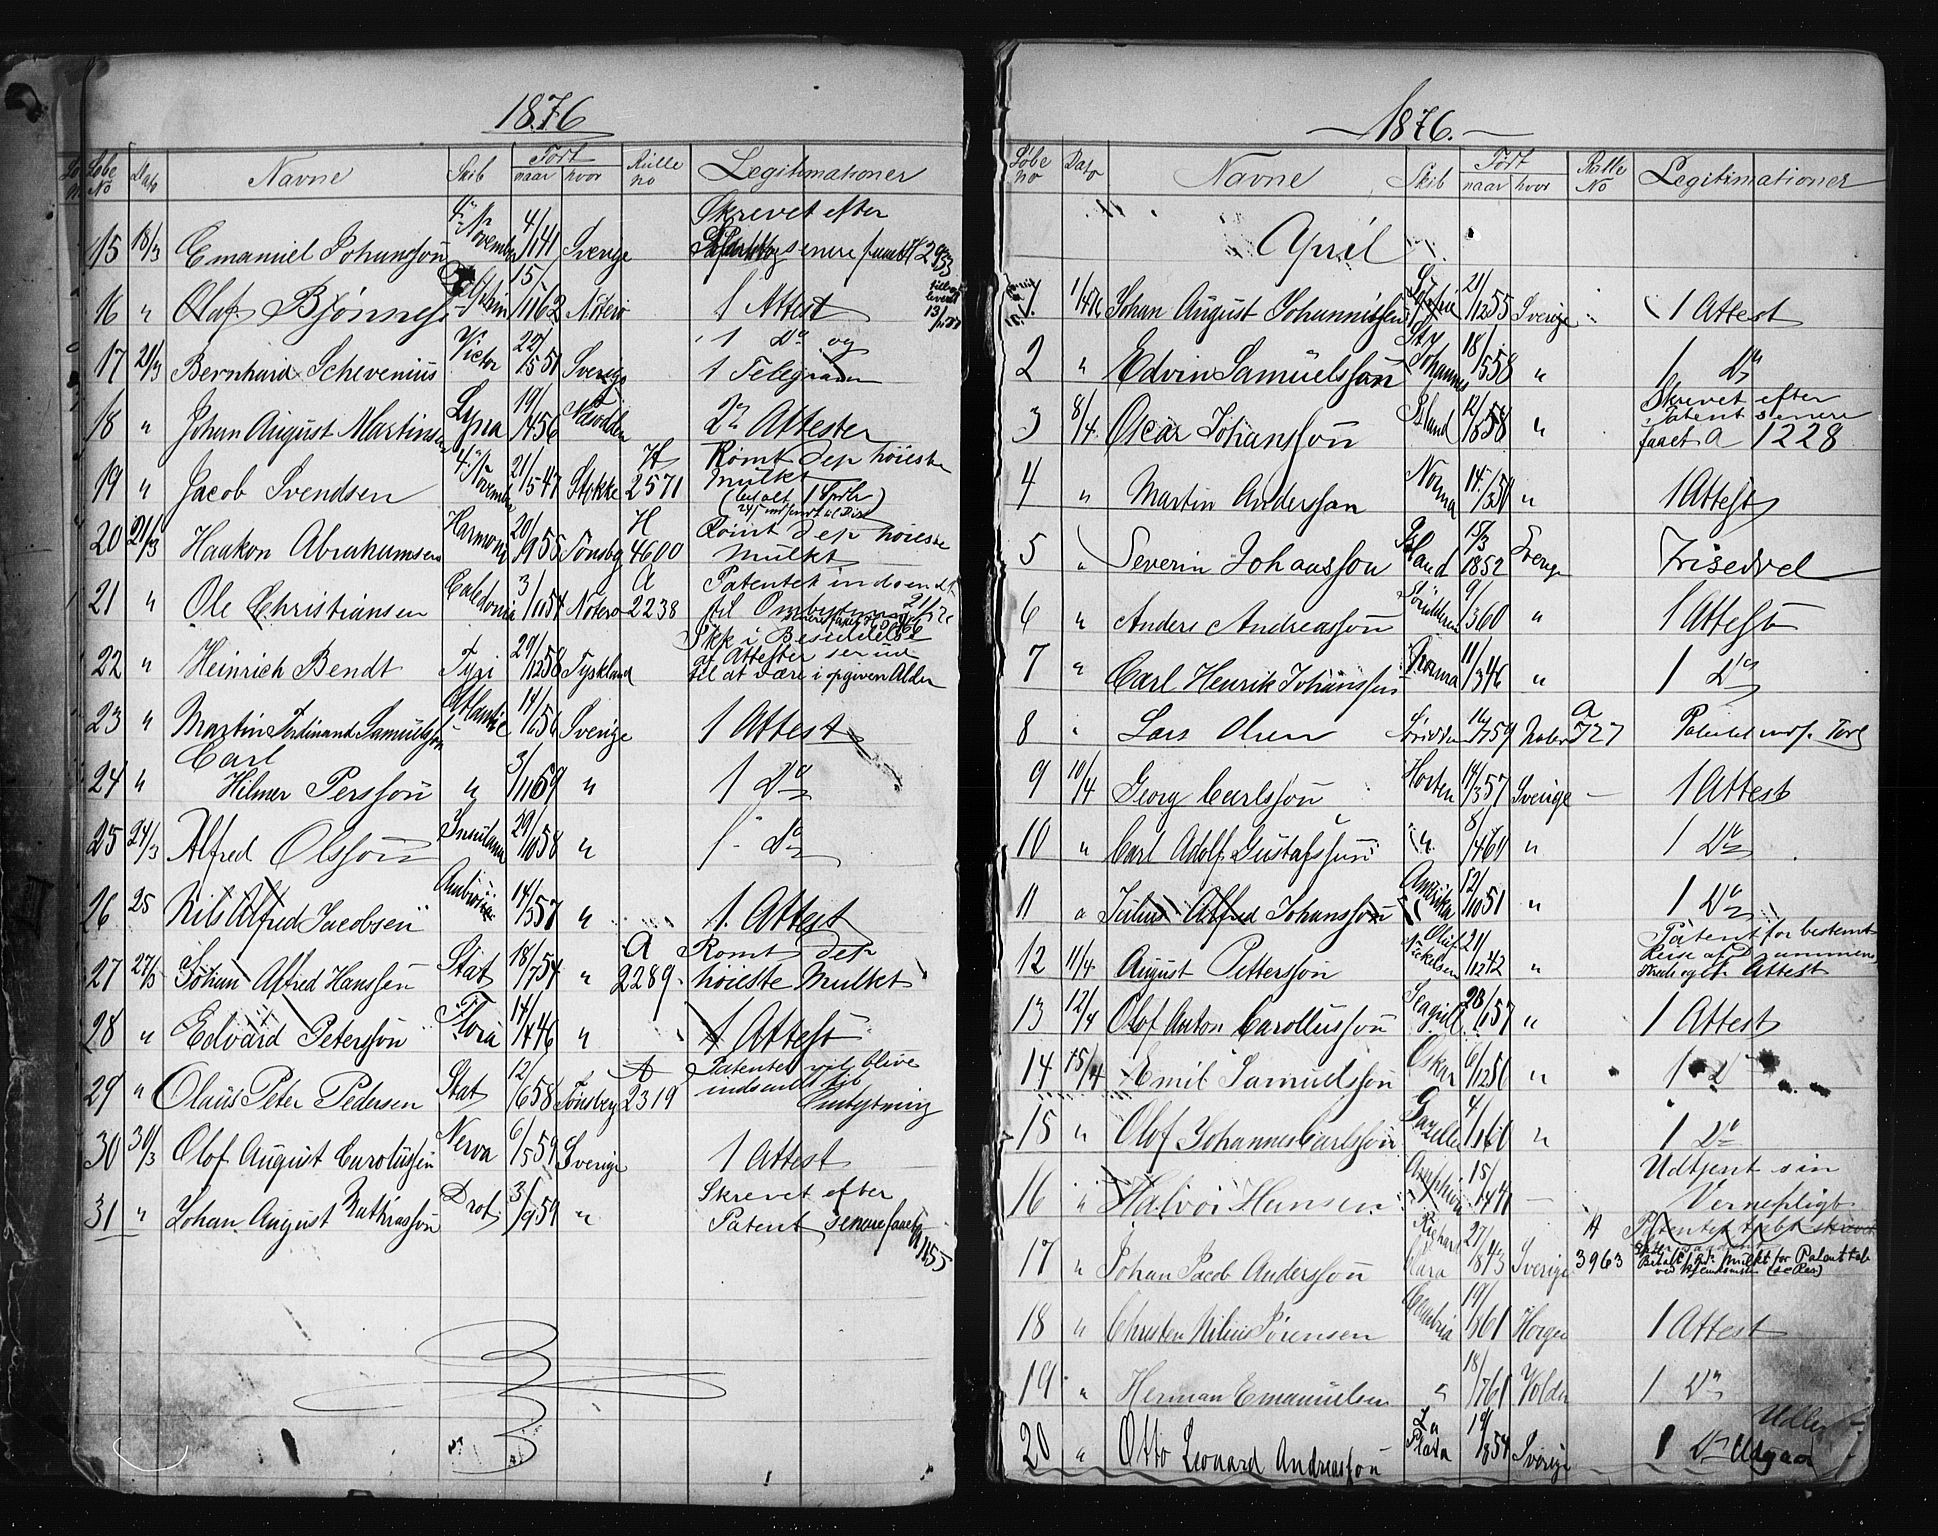 1876
Løbe No Dato Navne Skib Født naar hvor Rulle no Legitimationer
15 18/3 Emanuel Johansson 4de November 4/11 41 Sverige Skrevet efter senere faaet H 2933
16 " Olaf Bjønnes 15/11 62 Nøterø 1 Attest
17 21/3 Bernhard Schevenius Victor 22/5 51 Sverige 1 Do og
1 Telegram
18 " Johan August Martinsen Lyna 19/4 56 Næsodden 2 Attester
19 " Jacob Svendsen 4de November 21/5 47 Stokke H 2571 Rømt Dep høieste
Mulkt
(betalt 1 Spdlr)
20 21/3 Haakon Abrahamsen Harmoni 20/9 55 Tønsbg H 4600 Rømt Dep høieste
Mulkt
21 " Ole Christiansen Caledonia 3/11 54 Noterø A 2238 Patentet indsendt
til Ombytning 21/3 76
22 " Heinrich Bendt Tyri 29/12 58 Tyskland Ikk i Besiddelse
af Attester ser ud
til at være i opgiven Alder
23 " Martin Ferdinand Samuelsson Atlantic 14/6 56 Sverige 1 Attest
24 " Carl
Hilmer Persson " 3/11 59 " 1 Do
25 24/3 Alfred Olsson Insulana 29/10 58 " 1 Do
26 25 Nils Alfred Jacobsen 14/3 57 " 1 Attest
27 27/3 Johan Alfred Hanssen Stat 18/7 54 " A 2289 Romt Dep
høieste Mulkt
28 " Edvard Petersson Flora 14/4 46 " 1 Attest
29 " Olaus Peter Pedersen Stat 12/6 58 Tønsberg A 2319 Patentet vil blive
indsendt til
Ombytning
30 30/3 Olof August Carolusson Nerva 6/5 59 Sverige 1 Attest
31 " Johan August Mathiasson Drot 3/9 59 " Skrevet efter
Patent senere faaet 1155
1876.
Løbe no Dato Navne Skib Født naar hvor Rulle No Legitimationer
April
1 1/4 76 Johan August Johannissen 21/12 55 Sverige 1 Attest
2 " Edvin Samuelsson St Johannes 18/5 58 " 1 Do
3 8/4 Oscar Johansson Island 12/8 58 " Skrevet efter
Patent senere
faaet a 1228
4 " Martin Andersson Norma 14/3 50 " 1 Attest
5 " Severin Johansson Island 13/3 1852 Sverige Friseddel
6 " Anders Andreasson 9/3 60 " 1 Attest
7 " Carl Henrik Johansson Norma 11/3 46 " 1 Do
8 " Lars Olsen 16/7 59 Noterø a 727 Patentet indf.
9 10/4 Georg Carlsson Horten 14/3 57 Sverige 1 Attest
10 " Carl Adolf Gustafsson " 8/4 60 " 1 Do
11 " Julius Alfred Johansson Amerika 12/10 51 " 1 Do
12 11/4 August Pettersson Oluf Nickelsen 21/12 42 " Patent for bestemt
Reise af Drammens
Attest
13 12/4 Olof Anton Carollusson Seagull 28/1 57 " 1 Attest
14 15/4 Emil Samuelsson Oskar 6/12 56 " 1 D
15 " Olof Johannes Carlsson Gazelle 4/1 60 " 1 Do
16 " Halvor Hansen 15/1 44 Udtjent sin
Vernepligt
17 " Johan Jacob Andersson 27/8 43 Sverige A 3963 Betalt
Mulkt for Patenttab
ved Hjemkomsten (se Res)
18 " Christen Nilius Sørensen Cambria 19/8 61 Horgen 1 Attest
19 " Herman Emanuelsen " 18/7 61 Volden 1 Do
20 " Otto Leonard Andreasson La Plata 19/8 54 Sverige 1 Do